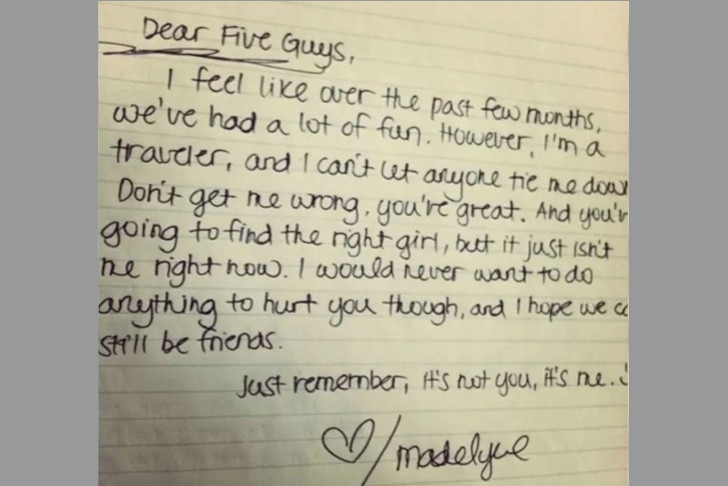 Dear Five Guys,
I feel like over the past few months,
we've had a lot of fun. However, I'm a
traveler, and I can't let anyone tie me dow
Don't get me wrong, you're great. And you'r
going to find the right girl, but it just isn't
me right now. I would never want to do
anything to hurt you though, and I hope we c
still be friends.
Just remember, it's not you, it's me.
♡/madelyne